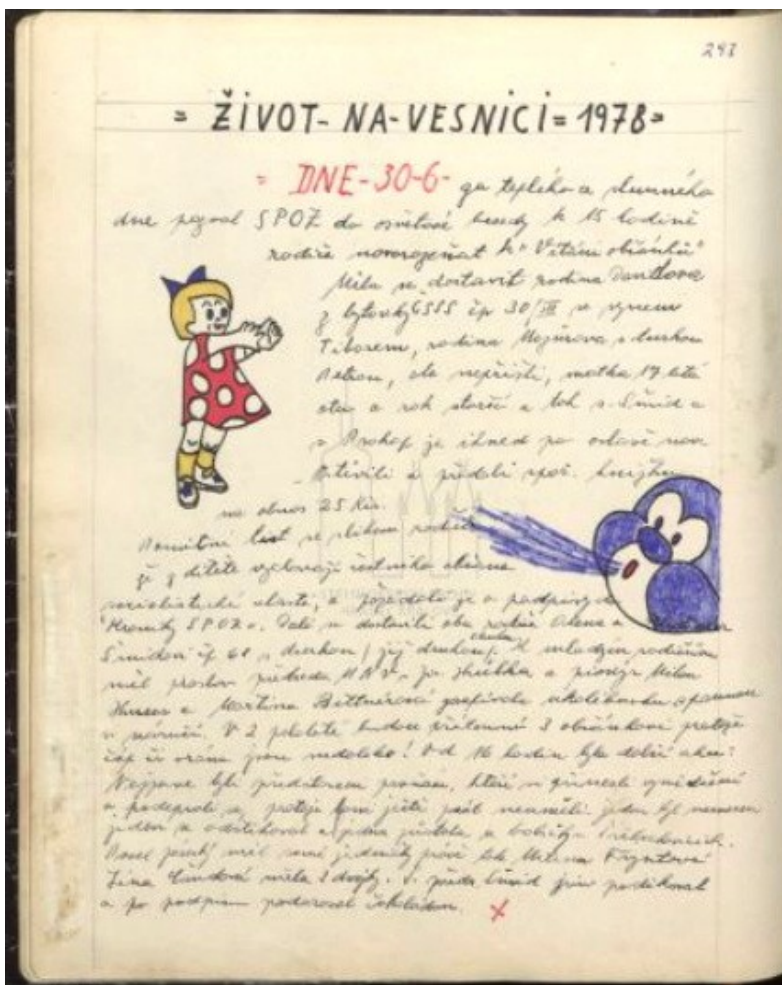 293
= ŽIVOT-NA-VESNICI=1978=
= DNE-30-6- za teplého a slunného
dne pozval SPOZ do osvětové besedy k 15 hodině
rodiče novorozeňat k "Vítání občánků"
Měla se dostavit rodina
z bytovky čp 30/III se synem
Tiborem, rodina s dcerkou
Petrou, ale nepřišli, matka 19 letá
otec o rok starší a tak s. Šmíd a
s Prokop je ihned po oslavě nav
štívili a předali spoř. knížku
na obnos 25 Kčs.
Pamětní list se slibem rodičů
že z dítěte vychovají řádného občana
socialistické vlasti, a požádali je o podpisy do
Kroniky SPOZu. Dále se dostavili oba rodiče Alena a
Šmídovi čp 61 s dcerkou K mladým rodičům
měl proslov předseda MNV. a pionýr Milan
a Martina Bittnerová zazpívala ukolébavku
V 2 pololetí budou vítáni 3 občánkové protože
čáp či vrána jsou nedaleko! Od 16 hodin byla další akce:
Nejprve byli představeni prvňáci, kteří si přinesli vysvědčení
a podepsali se, protože loni ještě psát neuměli. jeden byl nemocen
jeden se odstěhoval a jedna
Pavel měl samé jedničky právě tak Milena Fryntová
měla 2 dvojky. S. předs Šmíd jim poděkoval
a po podpisu podaroval čokoládou. x